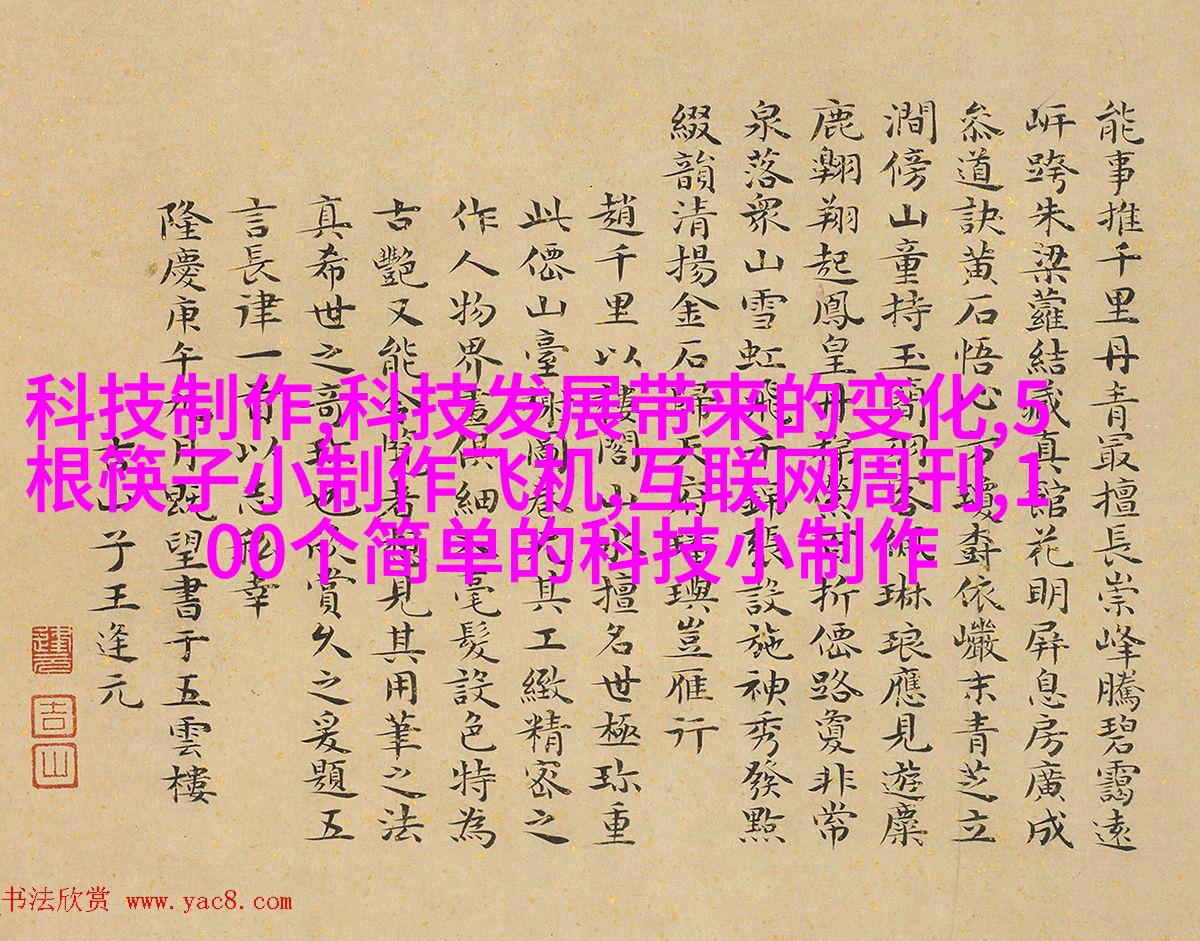 能事推千里丹青最擅長崇峰騰碧靄遠
岍跨朱梁蘿結藏真館花明屏息房廣成
叅道訣黃石悟心方瓊樹依巘末青芝立
澗傍山童持玉琳琅應見遊麋
鹿翱翔起鳳皇丹折僊路夐非常
泉落衆山雪虹飛千設施神秀發點
綴韻清揚金石歸天府璠璵豈雁行
趙千里以樓閣山水擅名世極珎重
此僊山臺榭圖卷其工緻精密之
作人物界畫俱細毫髮設色特為
古艷又能令覽者見其用筆之法
真希世之奇珎也欣賞久之爰題五
言長律一首以志私幸
隆慶庚午月既望書于五雲樓
吉山子王逢元
科技制作,科技发展带来的变化,5
根筷子小制作飞机,互联网周刊,1
00个简单的科技小制作
书法欣赏 www.yac8.com